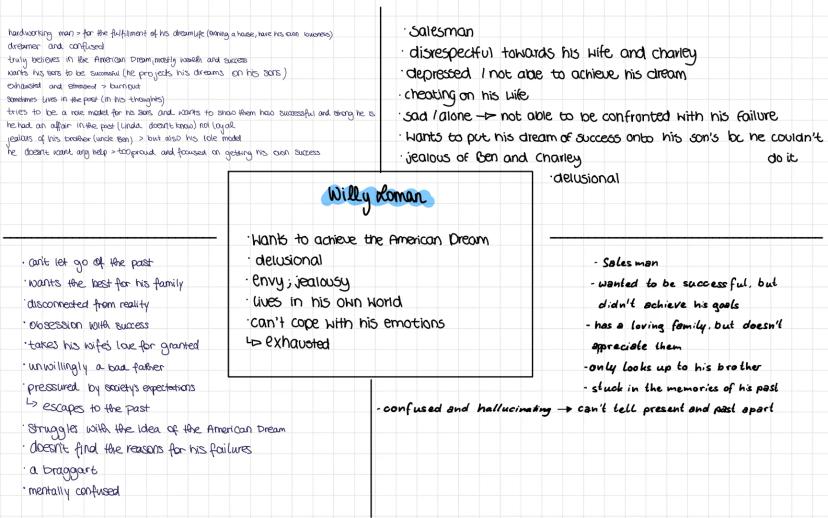 hardworking man > for the fulfillment of his dreamlife (owning a house, have his own business)
dreamer and confused
truly believes in the American Dream, mostly wealth and success
wants his sons to be successful (he projects his dreams on his sons)
exhausted and stressed > burnout
sometimes lives in the past (in his thoughts)
tries to be a role model for his sons and wants to show them how successful and strong he is
he had an affair in the past (Linda doesn't know) not loyal
jealous of his brother (uncle Ben) > but also his role model
he doesn't want any help > too proud and focused on getting his own success
· salesman
· disrespectful towards his wife and charley
· depressed / not able to achieve his dream
· cheating on his wife
· sad / alone → not able to be confronted with his failure
· wants to put his dream of success onto his son's bc he couldn't
do it
· jealous of Ben and Charley
· delusional
Willy Loman
· wants to achieve the American Dream
· delusional
· envy; jealousy
· lives in his own world
· can't cope with his emotions
↳ exhausted
· can't let go of the past
· wants the best for his family
· disconnected from reality
· obsession with success
· takes his wife's love for granted
· unwillingly a bad father
· pressured by society's expectations
↳ escapes to the past
· struggles with the idea of the American Dream
· doesn't find the reasons for his failures
· a braggart
· mentally confused
- Sales man
- wanted to be successful, but
didn't achieve his goals
- has a loving family, but doesn't
appreciate them
- only looks up to his brother
- stuck in the memories of his past
- confused and hallucinating → can't tell present and past apart